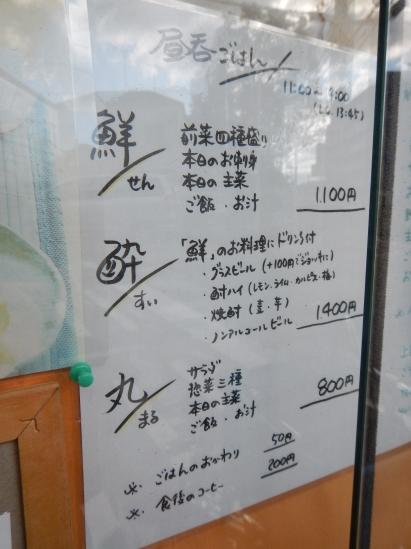 昼呑ごはん
11:00〜
(L.O. 13:45)
鮮
せん
前菜四種盛り
本日のお刺身
本日の主菜
ご飯・お汁
1,100円
酔
すい
「鮮」のお料理にドリンク付
・グラスビール (+100円でジョッキに)
・酎ハイ (レモン・ライム・カルピス・梅)
・焼酎 (麦・芋)
・ノンアルコールビール
1400円
丸
まる
サラダ
惣菜三種
本日の主菜
ご飯・お汁
800円
※ ごはんのおかわり 50円
※ 食後のコーヒー 200円